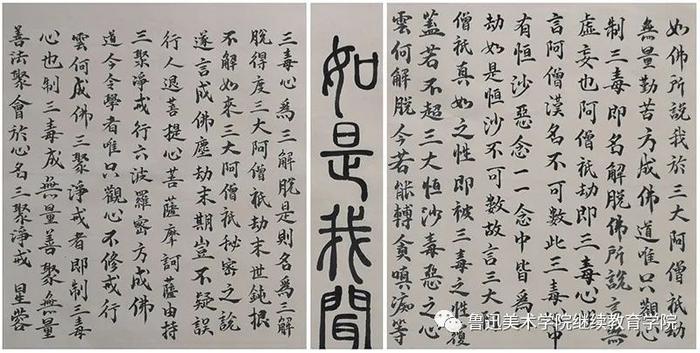 如佛所說我於三大阿僧祇劫
無量勤苦方成佛道唯只觀心
制三毒即名解脫佛所說言無
虛妄也阿僧祇劫即三毒心也胡
言阿僧漢名不可數此三毒中
有恒沙惡念一一念中皆為一
劫如是恒沙不可數故言三大
僧祇真如之性即被三毒之性覆
蓋若不超三大恒沙毒惡之心
雲何解脫今若能轉貪嗔痴等
如是我聞
三毒心為三解脫是則名為三解
脫得度三大阿僧祇劫末世鈍根
不解如來三大阿僧祇秘密之說
遂言成佛塵劫末期豈不疑誤
行人退菩提心菩薩摩訶薩由持
三聚淨戒行六波羅密方成佛
道今令學者唯只觀心不修戒行
雲何成佛三聚淨戒者即制三毒
心也制三毒成無量善聚無量
善法聚會於心名三聚淨戒 星蓉
鲁迅美术学院继续教育学院